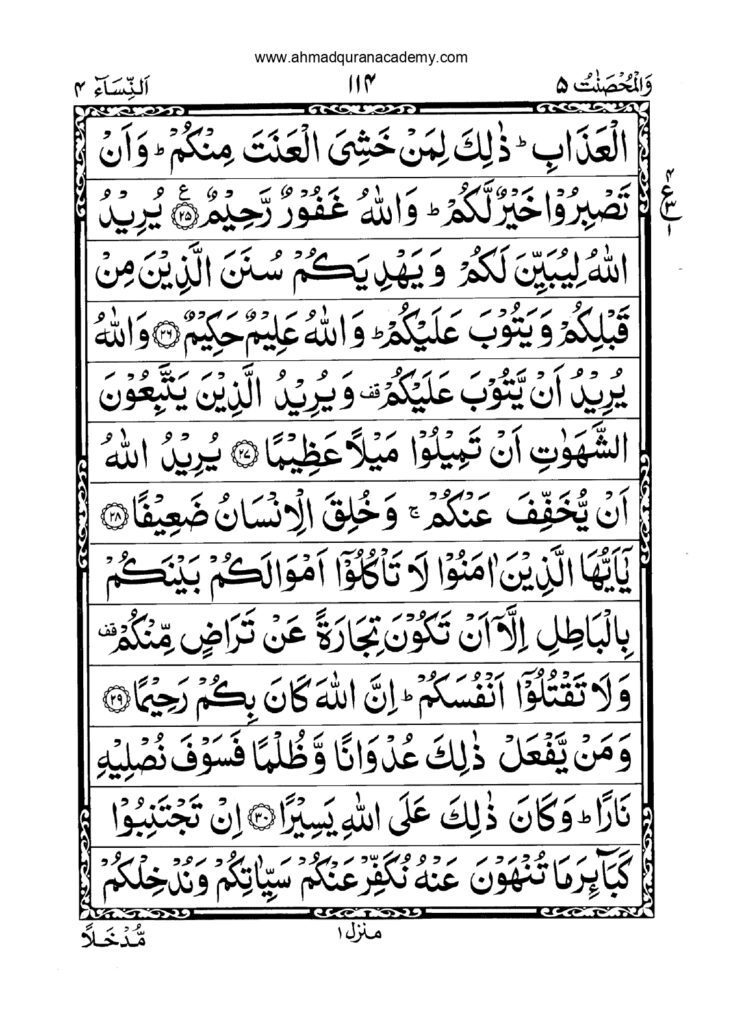 www.ahmadquranacademy.com
وَالْمُحْصَنٰتُ ۵ ۱۱۴ اَلنِّسَآء ۴
الْعَذَابِ ؕ ذٰلِكَ لِمَنْ خَشِیَ الْعَنَتَ مِنْكُمْ ؕ وَاَنْ
تَصْبِرُوْا خَیْرٌ لَّكُمْ ؕ وَاللّٰهُ غَفُوْرٌ رَّحِیْمٌ ۲۵ ع یُرِیْدُ
۴ ع ۳ ۱
اللّٰهُ لِیُبَیِّنَ لَكُمْ وَیَهْدِیَكُمْ سُنَنَ الَّذِیْنَ مِنْ
قَبْلِكُمْ وَیَتُوْبَ عَلَیْكُمْ ؕ وَاللّٰهُ عَلِیْمٌ حَكِیْمٌ ۲۶ وَاللّٰهُ
یُرِیْدُ اَنْ یَّتُوْبَ عَلَیْكُمْ قف وَیُرِیْدُ الَّذِیْنَ یَتَّبِعُوْنَ
الشَّهَوٰتِ اَنْ تَمِیْلُوْا مَیْلًا عَظِیْمًا ۲۷ یُرِیْدُ اللّٰهُ
اَنْ یُّخَفِّفَ عَنْكُمْ ۚ وَخُلِقَ الْاِنْسَانُ ضَعِیْفًا ۲۸
یٰۤاَیُّهَا الَّذِیْنَ اٰمَنُوْا لَا تَاْكُلُوْۤا اَمْوَالَكُمْ بَیْنَكُمْ
بِالْبَاطِلِ اِلَّاۤ اَنْ تَكُوْنَ تِجَارَةً عَنْ تَرَاضٍ مِّنْكُمْ قف
وَلَا تَقْتُلُوْۤا اَنْفُسَكُمْ ؕ اِنَّ اللّٰهَ كَانَ بِكُمْ رَحِیْمًا ۲۹
وَمَنْ یَّفْعَلْ ذٰلِكَ عُدْوَانًا وَّظُلْمًا فَسَوْفَ نُصْلِیْهِ
نَارًا ؕ وَكَانَ ذٰلِكَ عَلَی اللّٰهِ یَسِیْرًا ۳۰ اِنْ تَجْتَنِبُوْا
كَبَآئِرَ مَا تُنْهَوْنَ عَنْهُ نُكَفِّرْ عَنْكُمْ سَیِّاٰتِكُمْ وَنُدْخِلْكُمْ
منزل ۱
مُّدْخَلًا